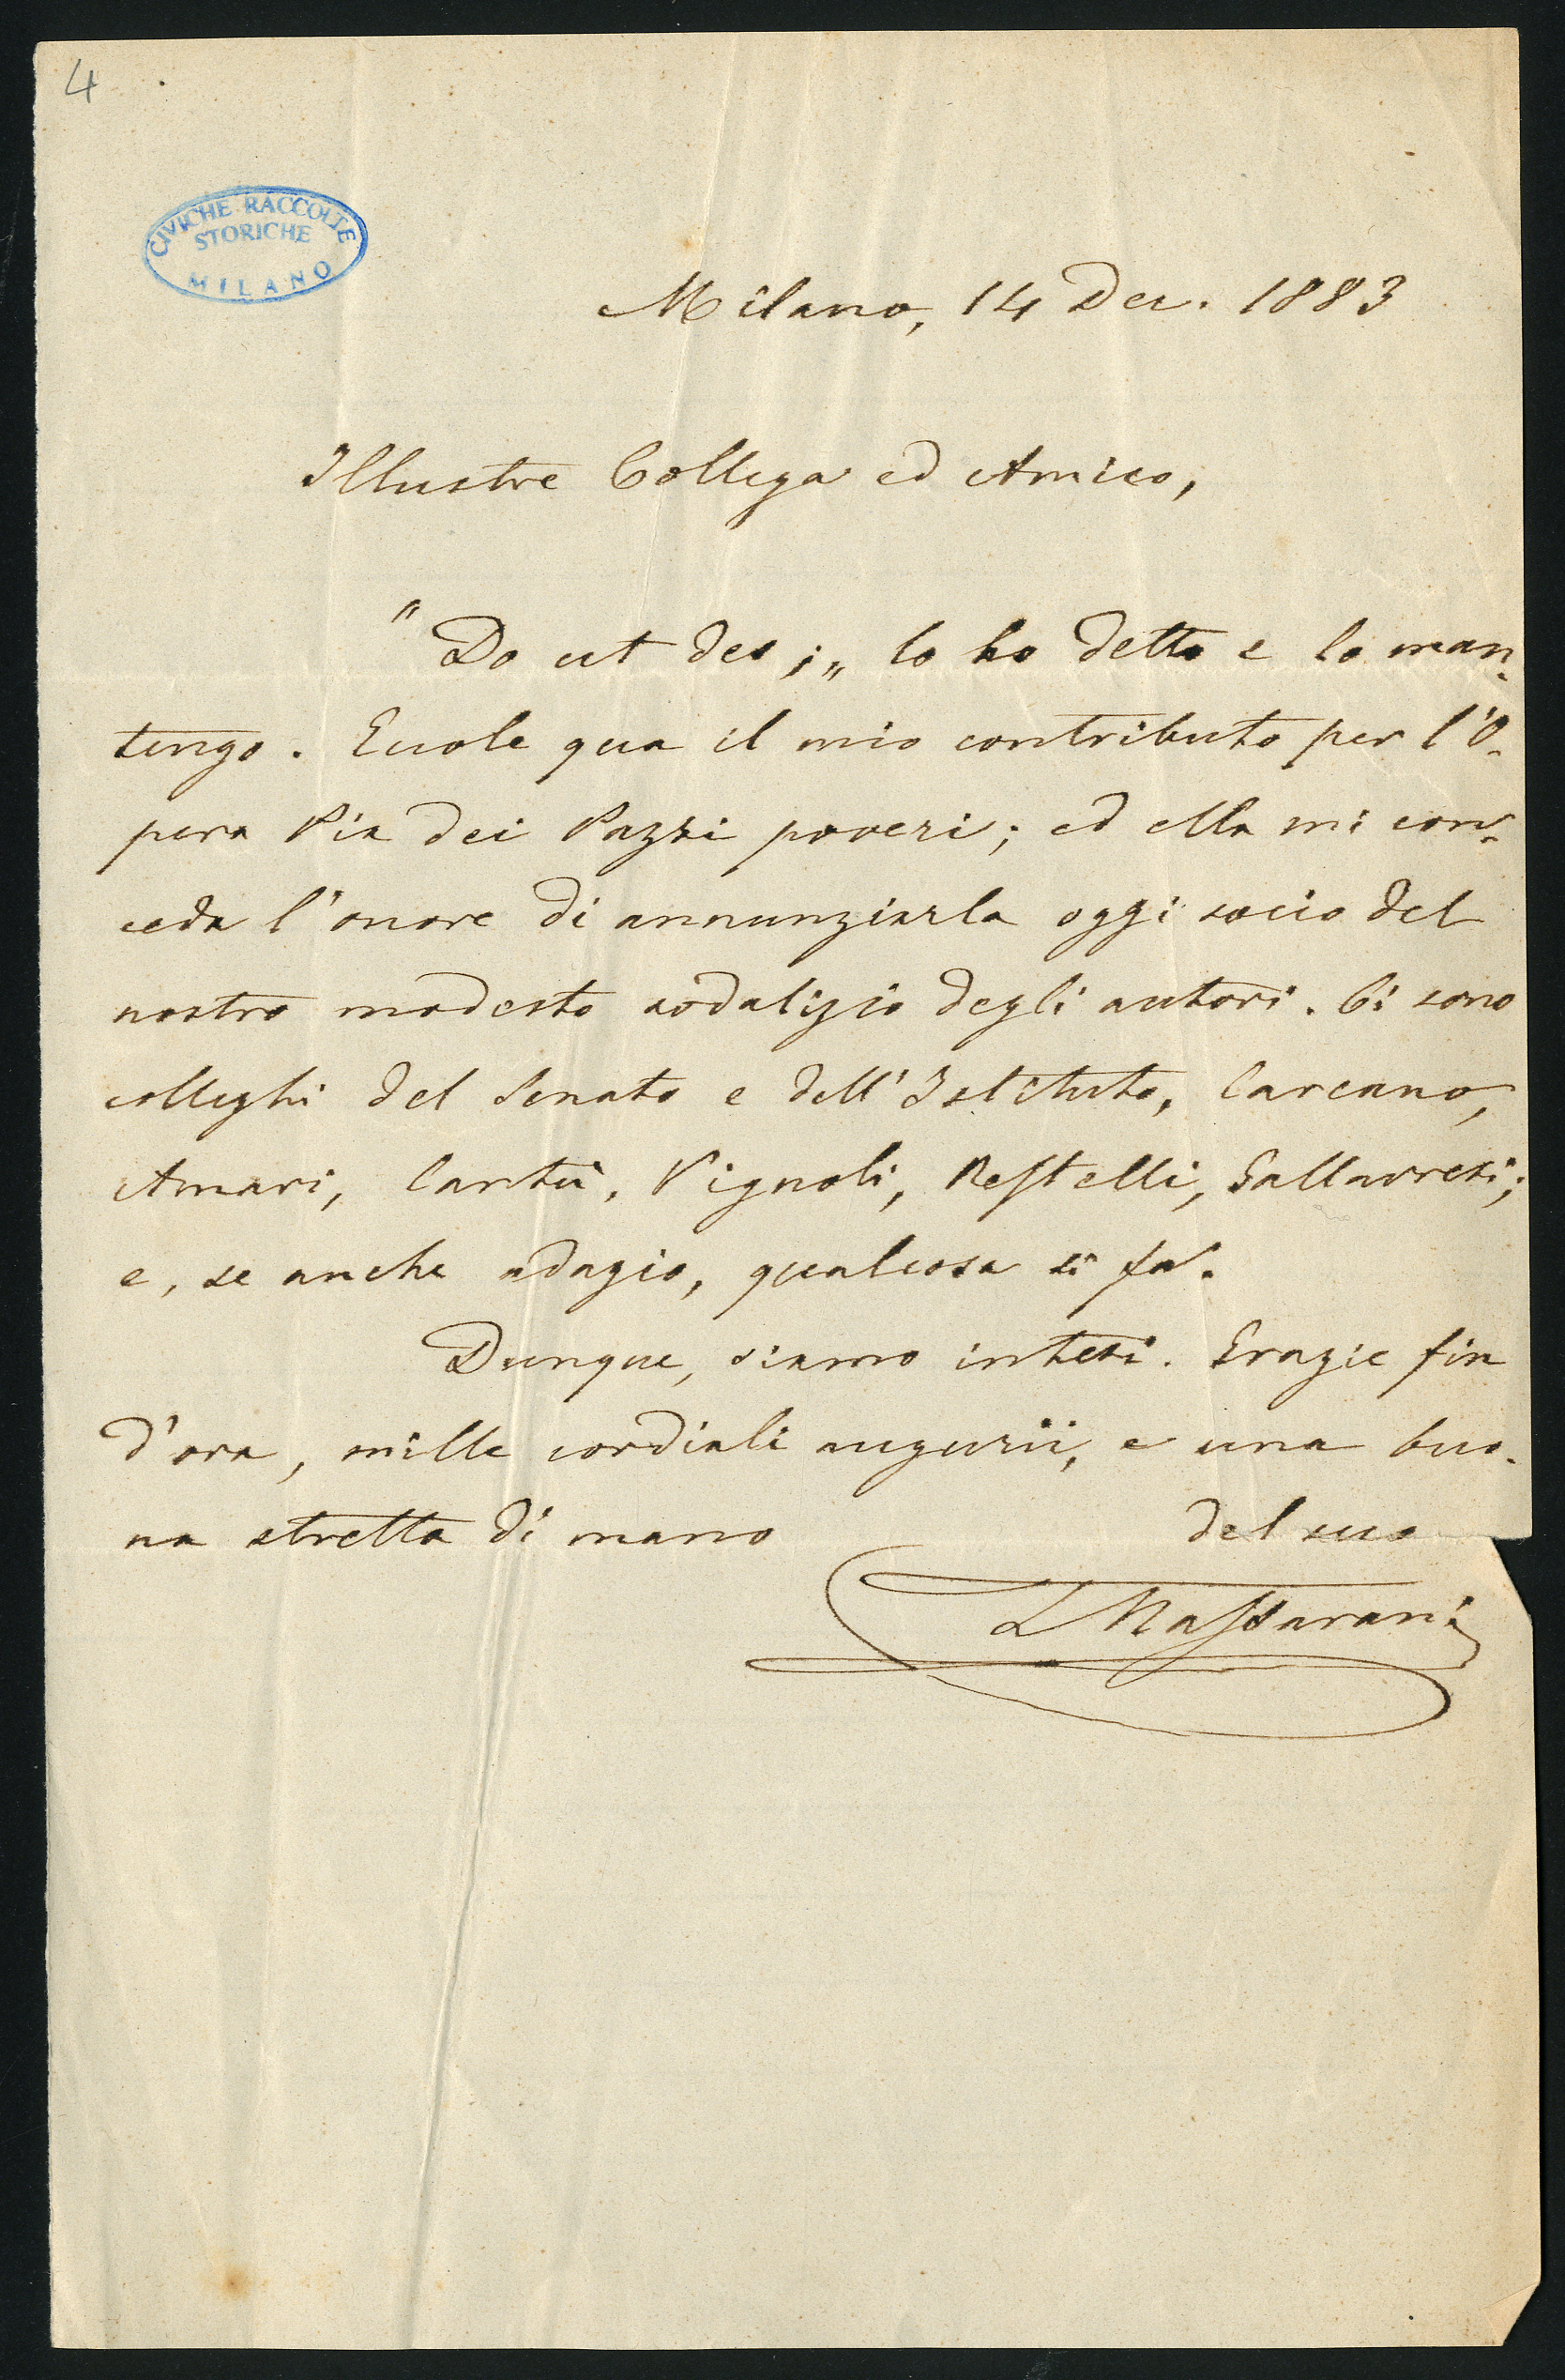 4
CIVICHE RACCOLTE
STORICHE
MILANO
Milano, 14 Dec. 1883
Illustre Collega ed Amico,
"Do ut des;„ lo ho detto e lo man-
tengo. Eccole qua il mio contributo per l'O-
pera Pia dei Pazzi poveri; ed ella mi con-
ceda l'onore di annunziarla oggi socio del
nostro modesto sodalizio degli autori. Ci sono
colleghi del Senato e dell'Istituto, Carcano,
Amari, Cantù, Vignoli, Restelli, Gallavresi;
e, se anche adagio, qualcosa si fa.
Dunque, siamo intesi. Grazie fin
d'ora, mille cordiali augurii, e una buo-
na stretta di mano
del suo
T Massarani